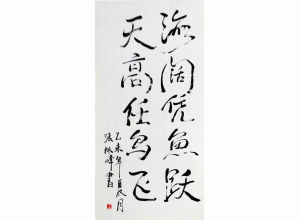 海阔凭鱼跃
天高任鸟飞
乙未年夏月
张林峰书